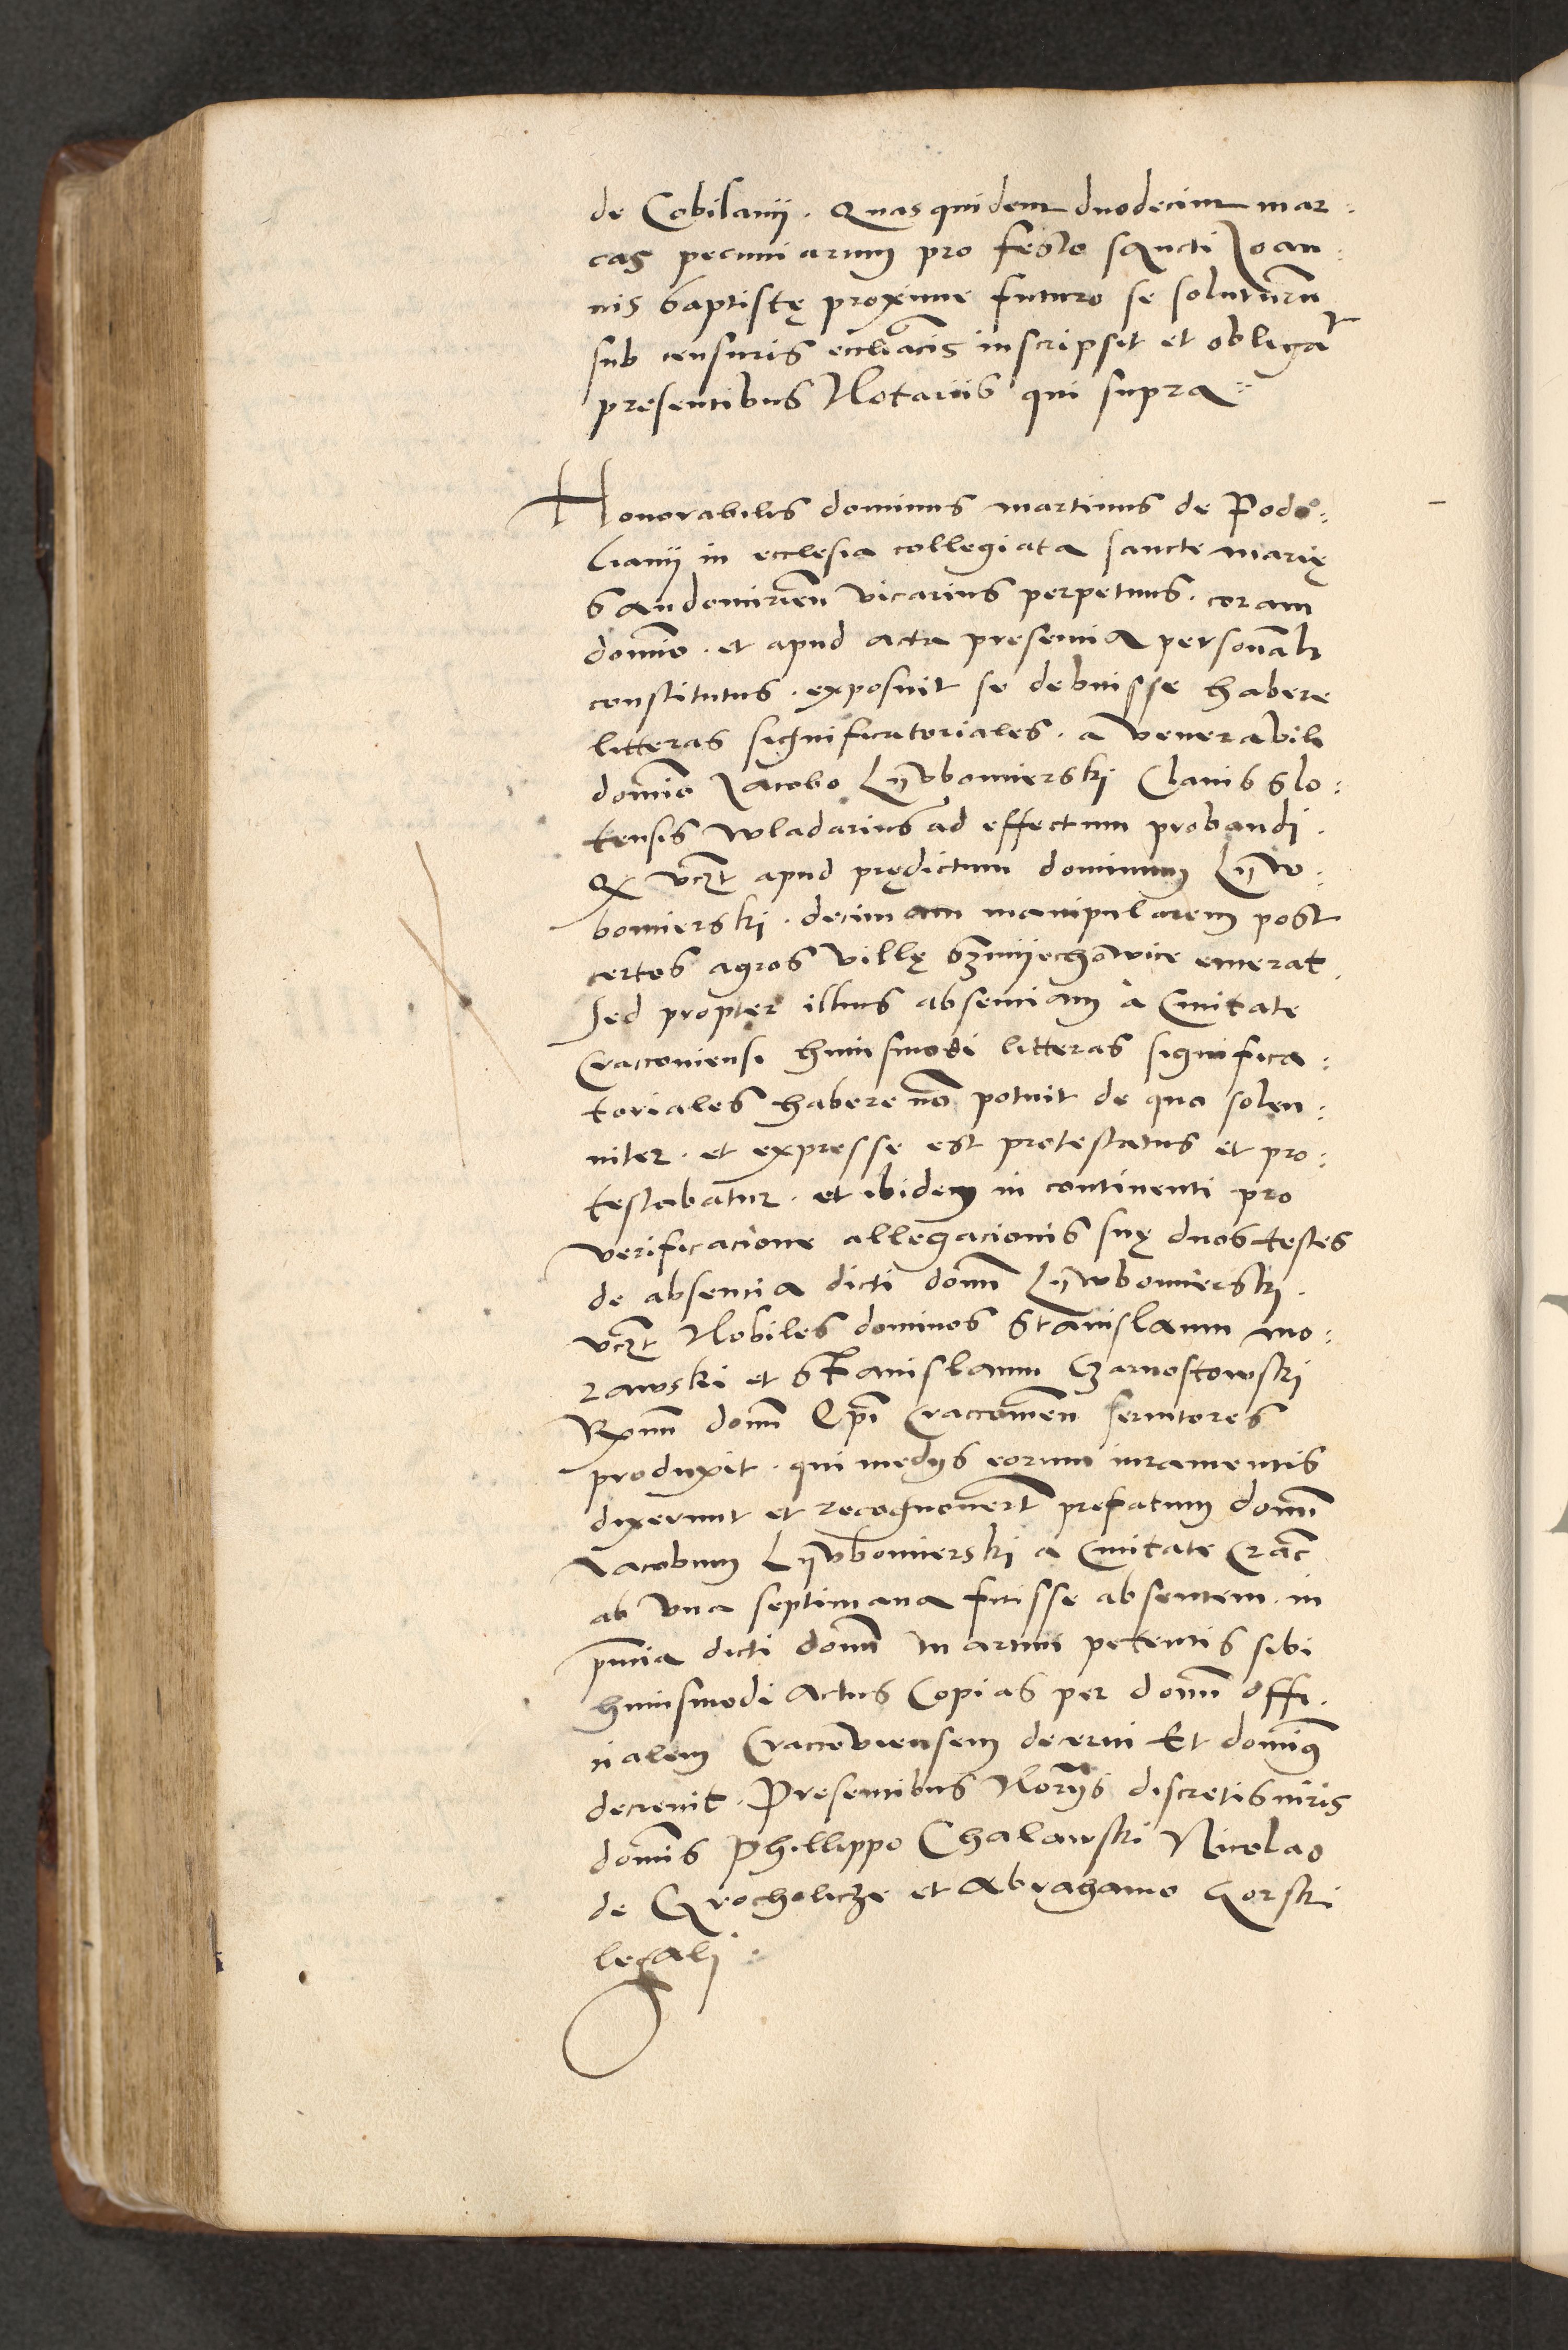 de Cobilanij. Quas quidem duodecim mar:
cas pecuniarum pro festo sancti Joan:
nis baptistę proxime futuro se soluturum
sub censuris eccliacis inscripsit et obligat
presentibus Notariis qui supra
Honorabilis dominus martinus de Podo:
lianij in ecclesia collegiata sancte marię
Sandomirien vicarius perpetuus. coram
domino. et apud acta presencia personali
constitutus. exposuit se debuisse habere
litteras significatoriales. a venerabili
domino Jacobo Lijwbomierski Clavis Slo:
tensis wladarius ad effectum probandi.
Q vczt apud prędictum dominum Lijw:
bomierski. decimam manipularem post
certos agros villę Szmijechowice emerat.
sed propter illius absenciam a Civitate
Cracoviensi huiusmodi litteras significa:
toriales habere non potuit de quo solen:
niter. et expresse est protestatus et pro:
testabatur. et ibidem in continenti pro
verificacione allegacionis suę duos testes
de absencia dicti domi Lijwbomierski.
vczt Nobiles dominos Stanislaum mo:
rawski et Stanislaum Czarnostowski
Rxmi domi Epi Cracovien servitores
produxit. qui medys eorum iuramentis
dixerunt et recognovert prefatum domi
Jacobum Lijwbomierski a Civitate Crac
ab una septimana fuisse absentem. in
pncia dicti domi Martini petentis sibi
huiusmodi actus Copias per domi offi:
cialem Cracoviensem decerni Et dominus
decrevit. Presentibus Norijs discretis viris
dominis Phillippo Chalawski Nicolao
de Grocholicze et Abrahamo Gorski
legali